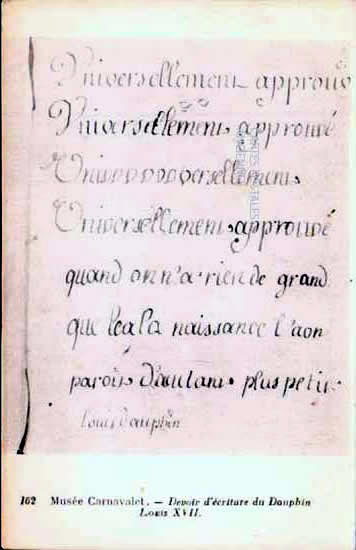 Universellement approuvé
Universellement approuvé
Univvvvversellement
Universellement approuvé
quand on n'a rien de grand
que la naissance l'on
paroit d'autant plus petit
Louis dauphin
162 Musée Carnavalet. — Devoir d'écriture du Dauphin
Louis XVII.